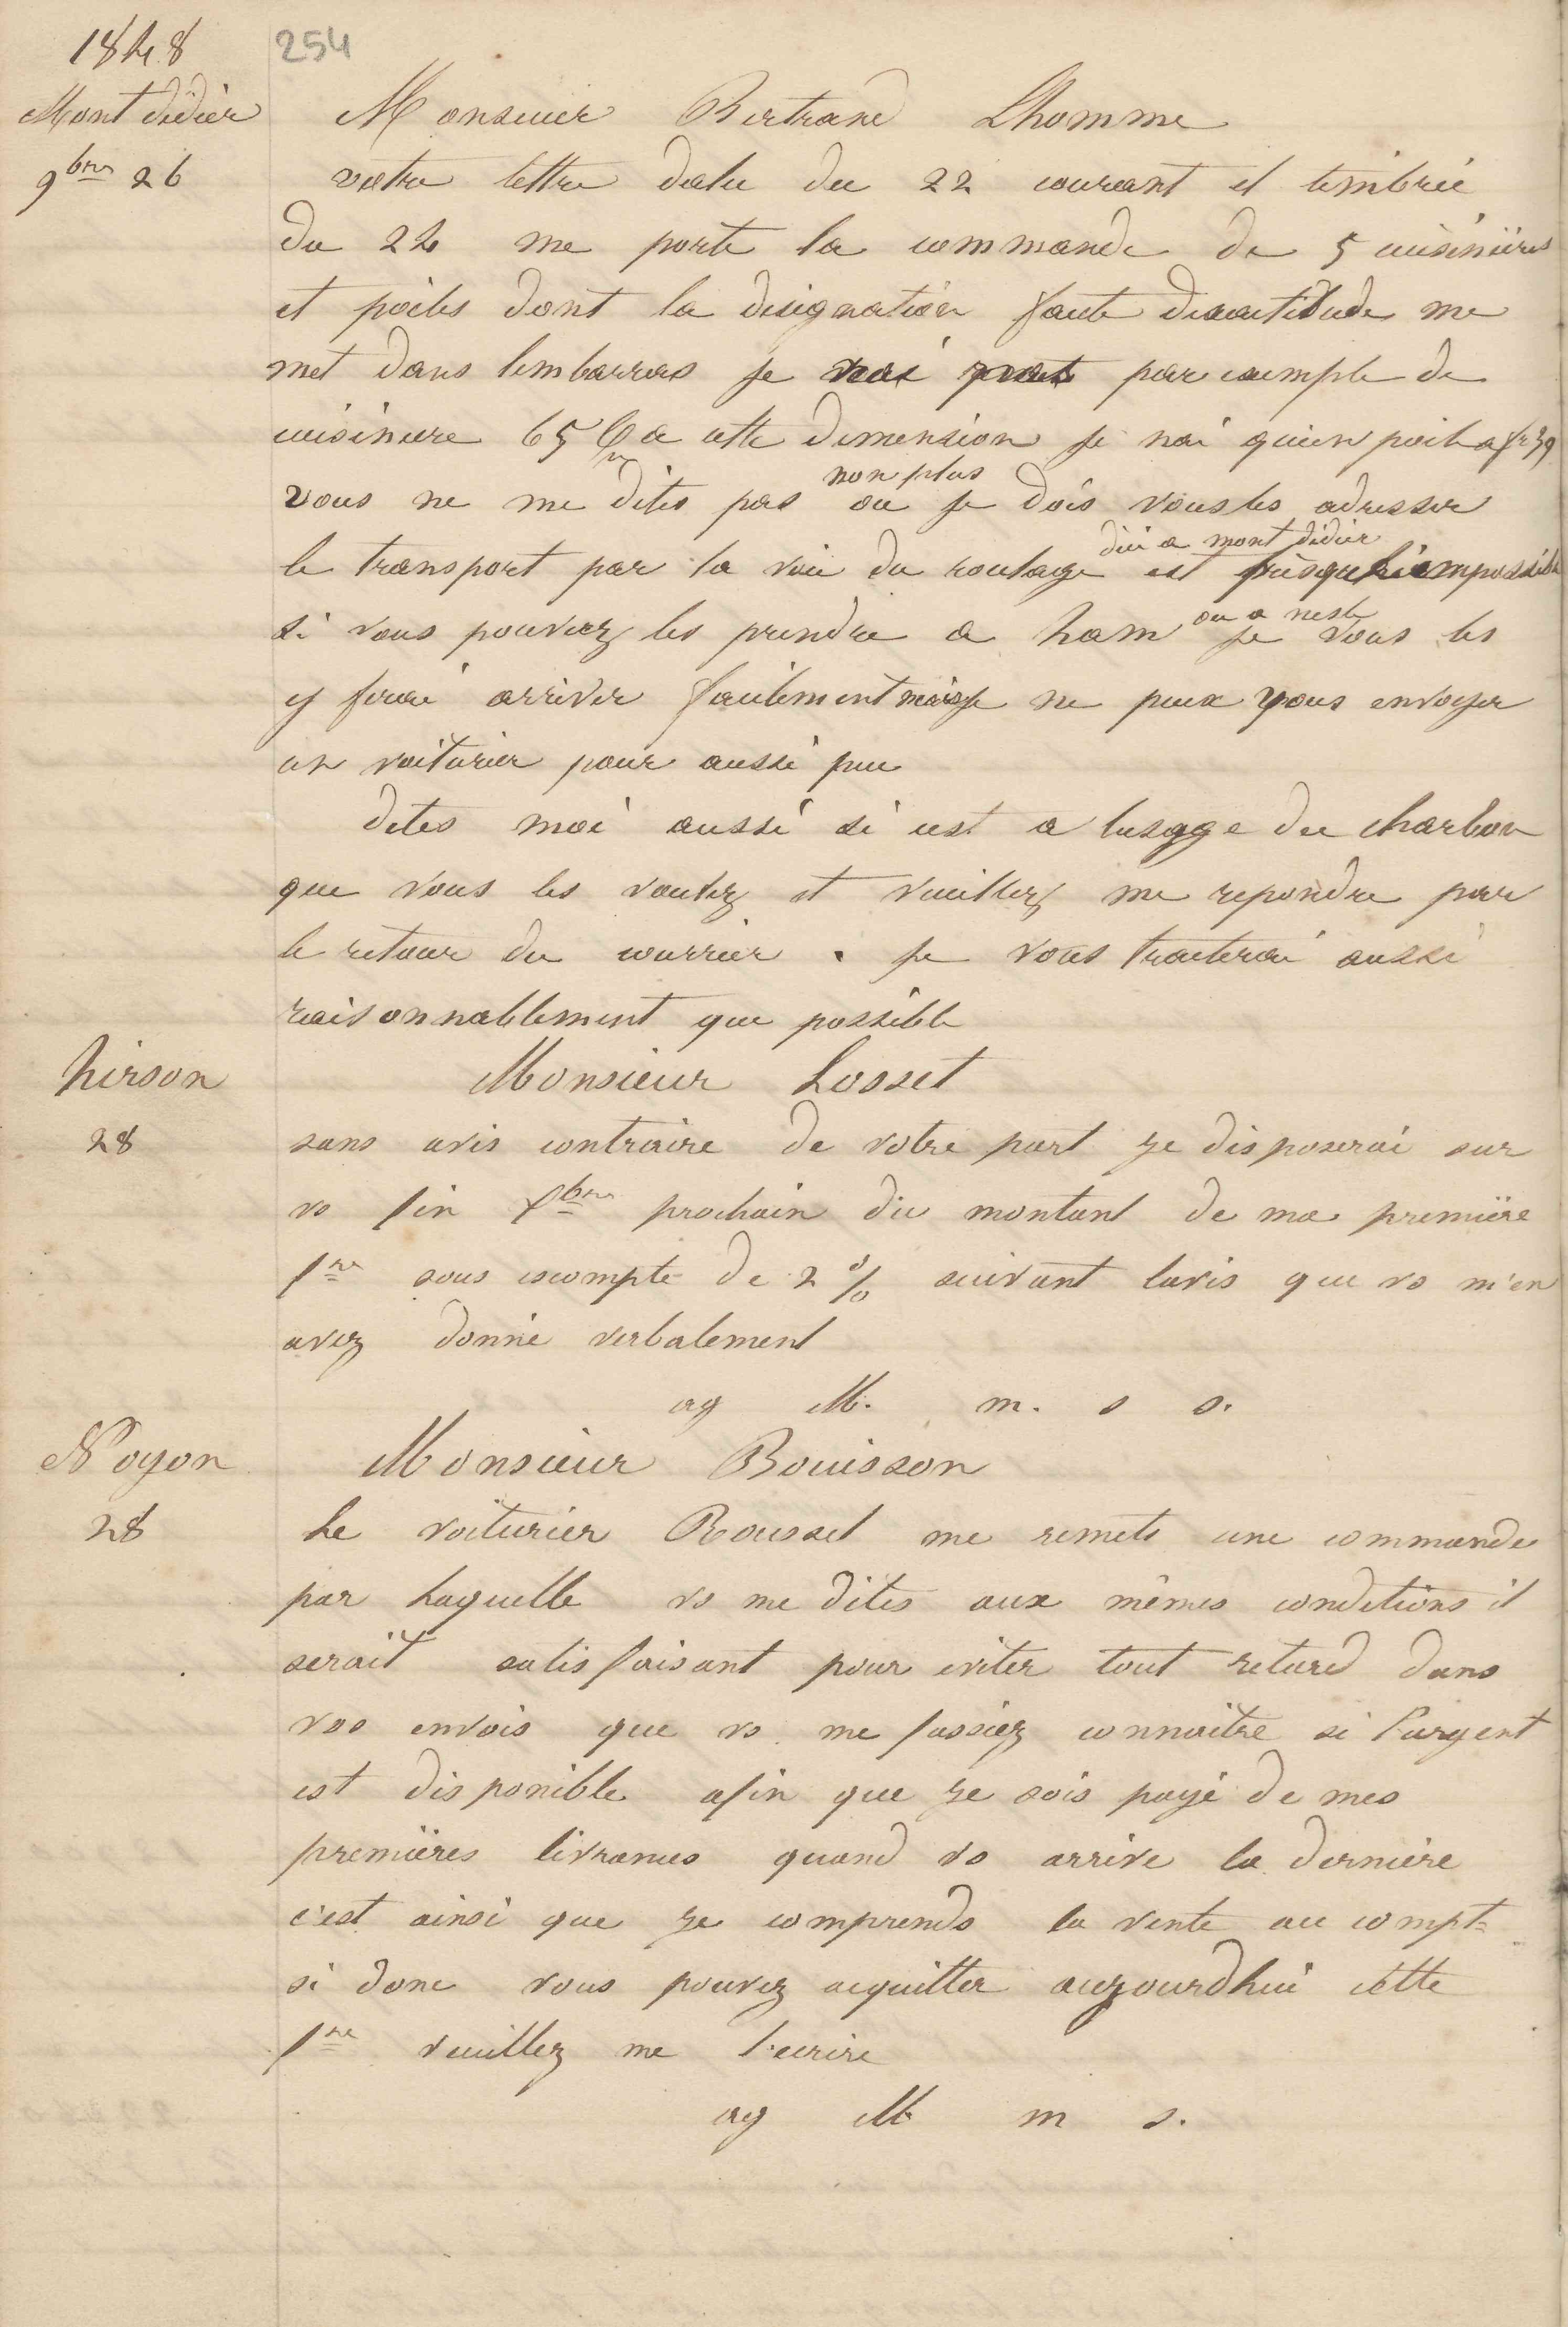 1848
254
Mont didier
9bre 26
Monsieur Bertrand Lhomme
votre lettre datee du 22 courant et timbrée
du 24 me porte la commande de 5 cuisinières
et poêles dont la designation faute dexactitude me
met dans lembarras je nai pas par exemple de
cuisiniere 65 a cette dimension je nai quun poele a fr 39
non plus
vous ne me dites pas ou je dois vous les adresser
dici a mont didier
le transport par la voie du roulage est presque impossible
ou a nesle
si vous pouviez les prendre a ham je vous les
y ferai arriver facilement mais je ne peux vous envoyer
un voiturier pour aussi peu
dites moi aussi si cest a lusage du charbon
que vous les voulez et veuillez me repondre par
le retour du courrier . je vous traiterai aussi
raisonnablement que possible
hirson
28
Monsieur Losset
sans avis contraire de votre part je disposerai sur
vs fin Xbre prochain du montant de ma première
fre sous escompte de 2 % suivant lavis que vs m'en
avez donné verbalement
ag M. m. s s.
Noyon
28
Monsieur Bouisson
Le voiturier Rousset me remets une commande
par laquelle vs me dites aux mêmes conditions il
serait satisfaisant pour eviter tout retard dans
vos envois que vs me fassiez connaitre si l'argent
est disponible afin que je sois payé de mes
premières livrances quand vs arrive la derniere
c'est ainsi que je comprends la vente au compt
si donc vous pouvez acquitter aujourdhui cette
fre veuillez me l'ecrire
ag M m s.